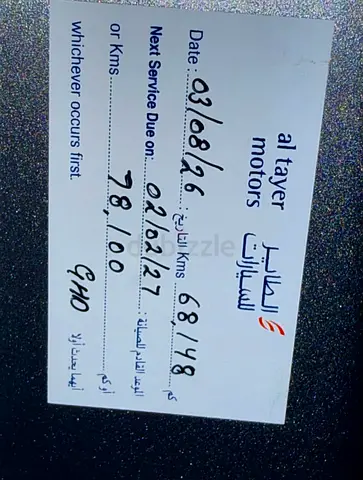 al tayer الطاير
motors للسيارات
Date: 03/08/26 التاريخ: Kms 68,148 كم
Next Service Due on: 02/02/27 الموعد القادم للصيانة:
or Kms 78,100 أو كم
whichever occurs first. GHO أيهما يحدث أولا
dubizzle